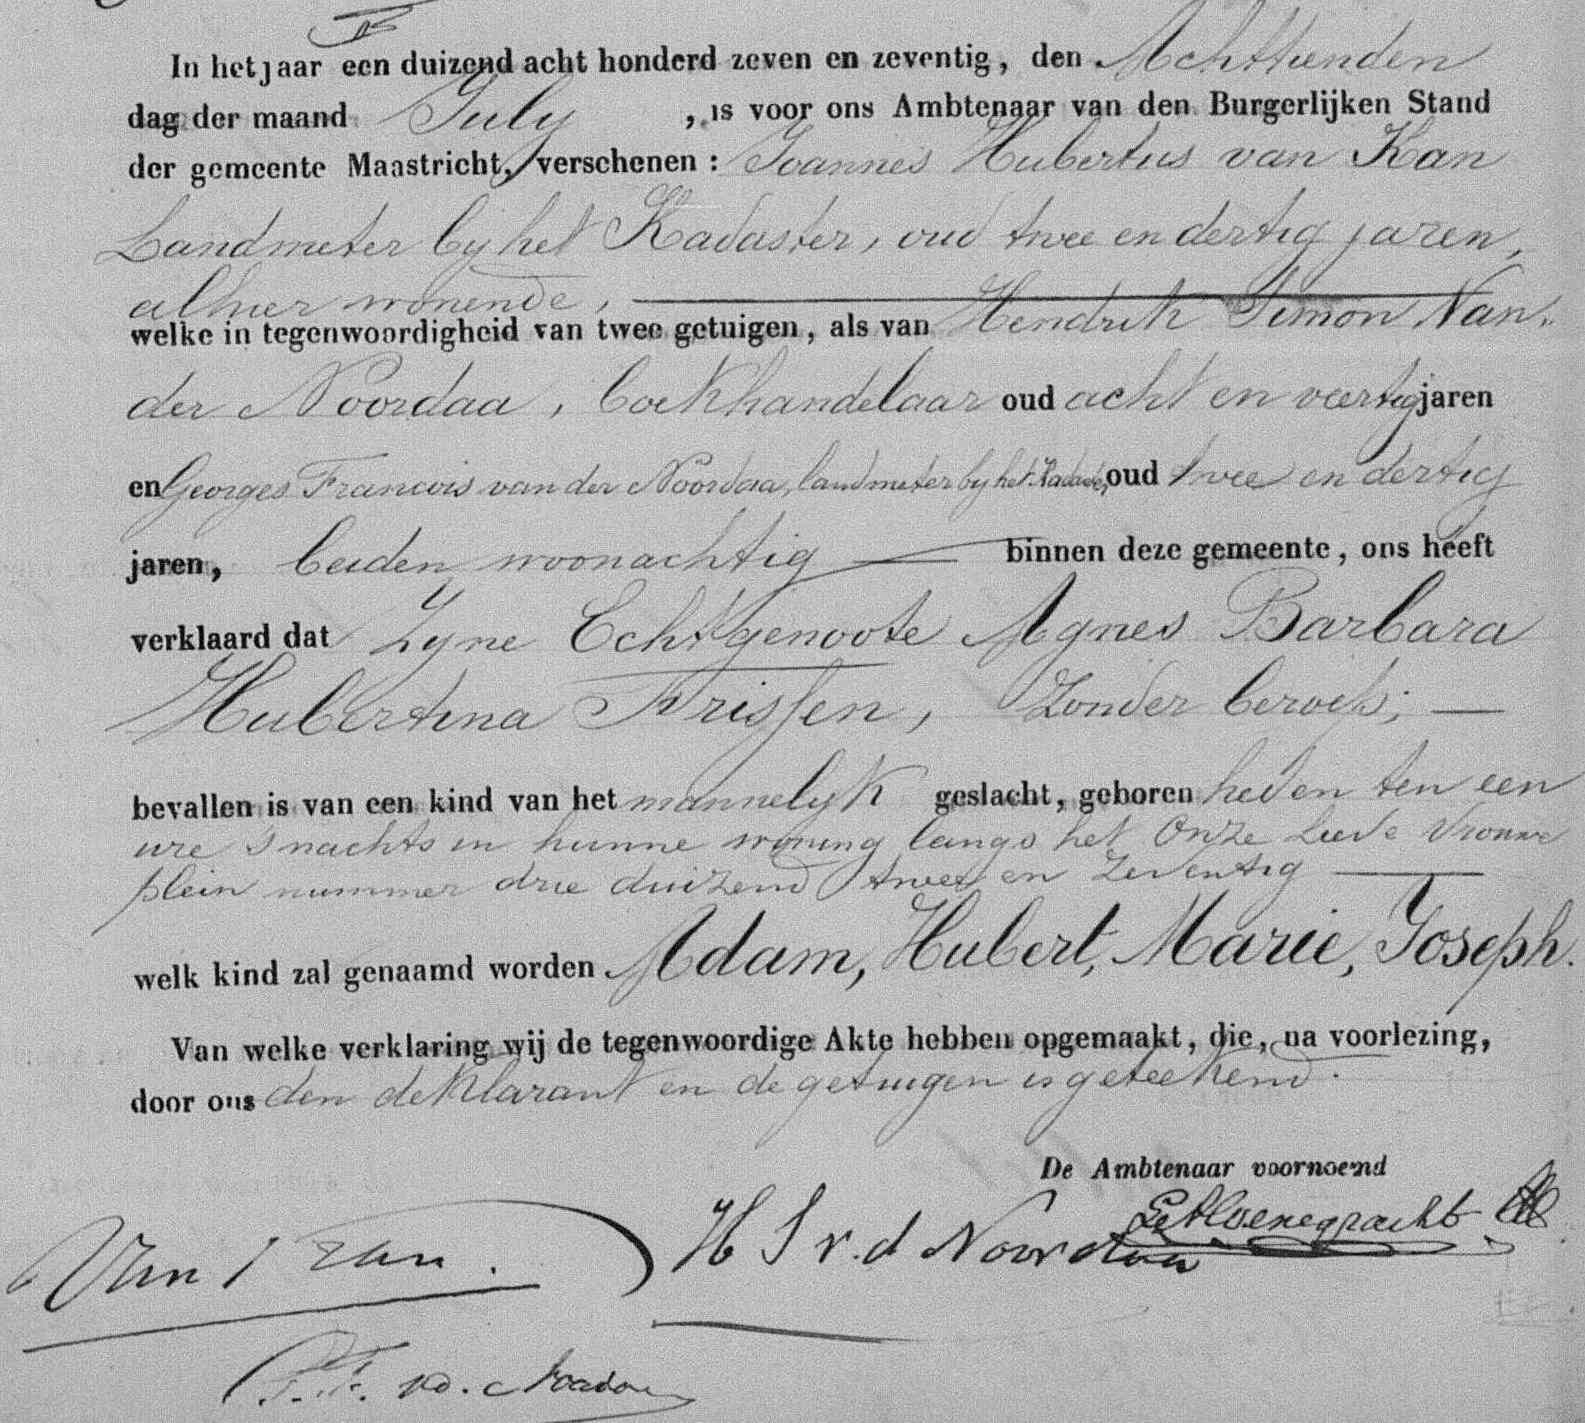 In het jaar een duizend acht honderd zeven en zeventig, den Achttienden
dag der maand July , is voor ons Ambtenaar van den Burgerlijken Stand
der gemeente Maastricht, verschenen : Joannes Hubertus van Kan
Landmeter by het Kadaster, oud twee en dertig jaren,
alhier wonende,
welke in tegenwoordigheid van twee getuigen, als van Hendrik Simon Van
der Noordaa, boekhandelaar oud acht en veertig jaren
en Georges Francois van der Noordaa, landmeter by het Kadaster, oud twee en dertig
jaren, beiden woonachtig binnen deze gemeente, ons heeft
verklaard dat Zyne Echtgenoote Agnes Barbara
Hubertina Frissen, Zonder beroep; —
bevallen is van een kind van het mannelyk geslacht, geboren heden ten een
ure s'nachts in hunne woning langs het Onze Lieve Vrouwe
plein nummer drie duizend twee en zeventig —
welk kind zal genaamd worden Adam, Hubert, Marie, Joseph.
Van welke verklaring wij de tegenwoordige Akte hebben opgemaakt, die, na voorlezing,
door ons den deklarant en de getuigen is geteekend.
De Ambtenaar voornoemd
Van Kan. H S v. d Noordaa
G. F. vd. Noordaa